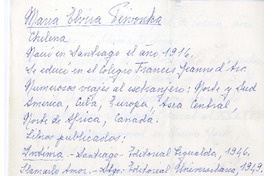 María Elvira Piwonka
Chilena
Nació en Santiago el año 1916.
Se educó en el Colegio Francés Jeanne d'Arc
Numerosos viajes al extranjero: Norte y Sud
America, Cuba, Europa, Asia Central,
Norte de Africa, Canadá.
Libros publicados:
Intima.- Santiago- Editorial 1946.
Llamarlo Amor.- Stgo. Editorial Universitaria, 1949.